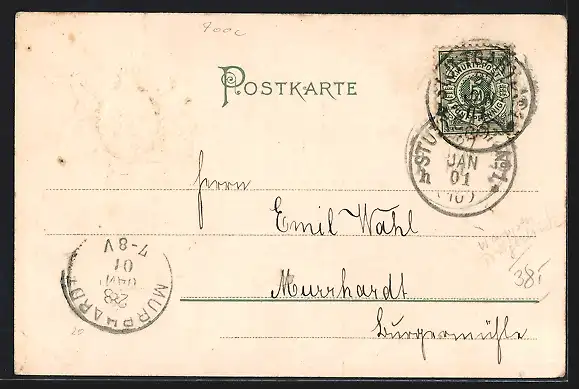 POSTKARTE
5
STUTTGART No. 1
JAN
01
Herrn
Emil Wahl
Murrhardt
Burgermühle
MURRHARDT
28
JAN
01
7-8V
38,-